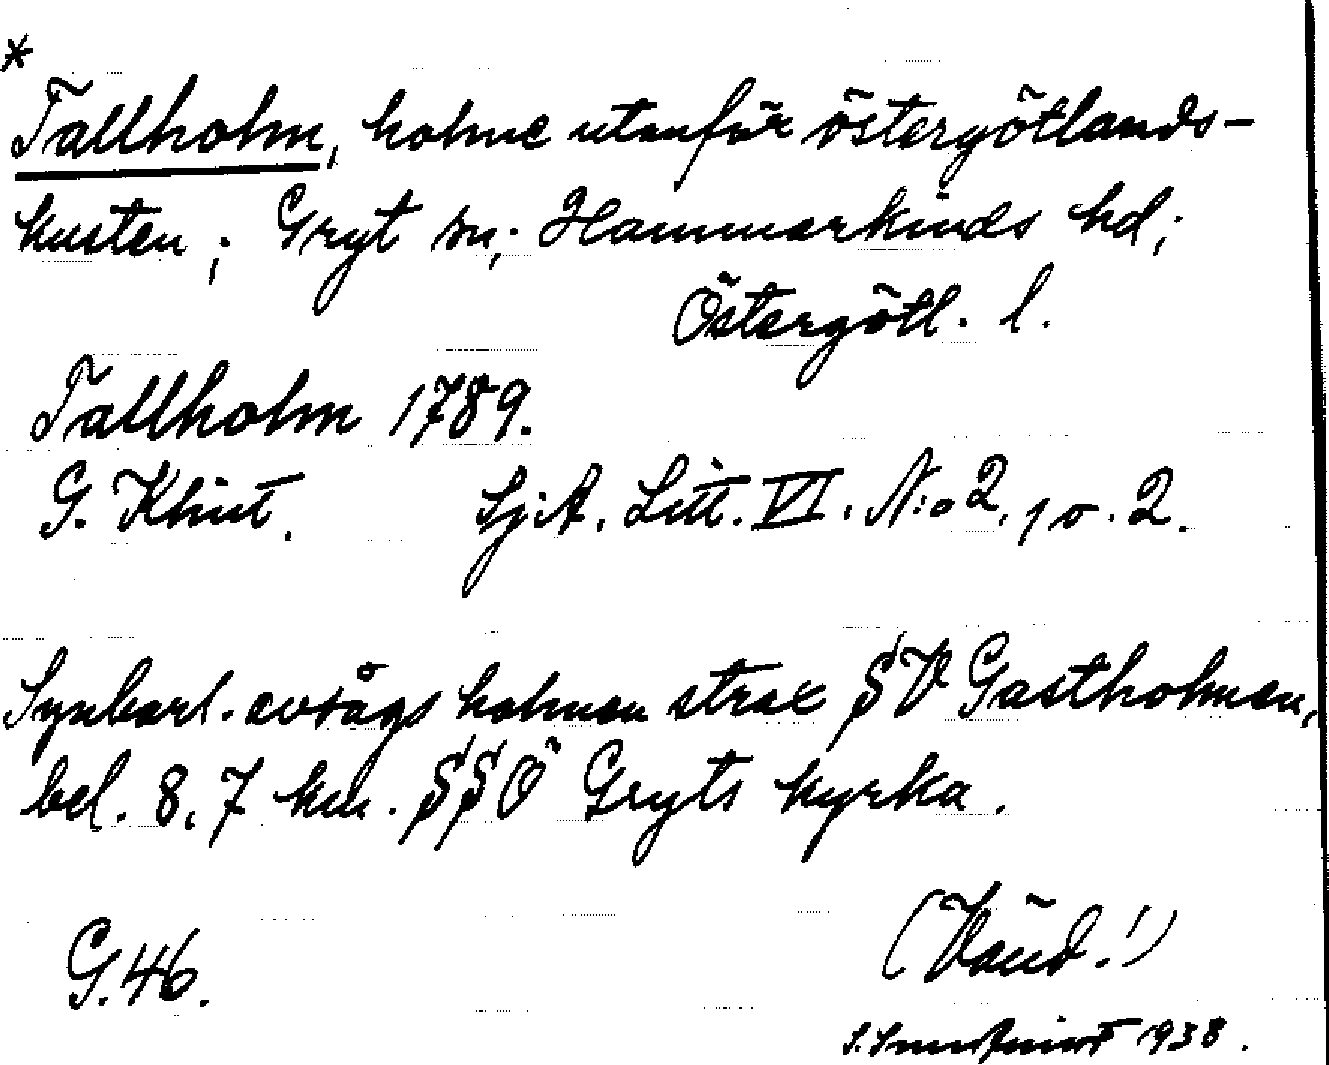 *
Tallholm, holme utanför östergötlands-
kusten; Gryt sn; Hammarkinds hd;
Östergötl. l.
Tallholm 1789.
G. Klint. Sj.A. Litt. VI. N:o 2, 10. 2.
Synbarl. avsågs holmen strax SV Gastholmen,
bel. 8,7 km. SSÖ Gryts kyrka.
(Vänd!)
G.46.
1938.